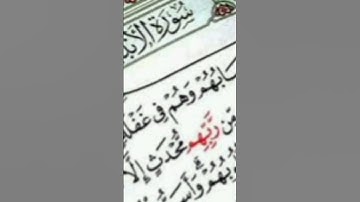 سُورَةُ الْأَنْبِ
سَابُهُمْ وَهُمْ فِى غَفْلَ
مِّن رَّبِّهِم مُّحْدَثٍ إِلَّا
وبُهُمْ وَأَسَ